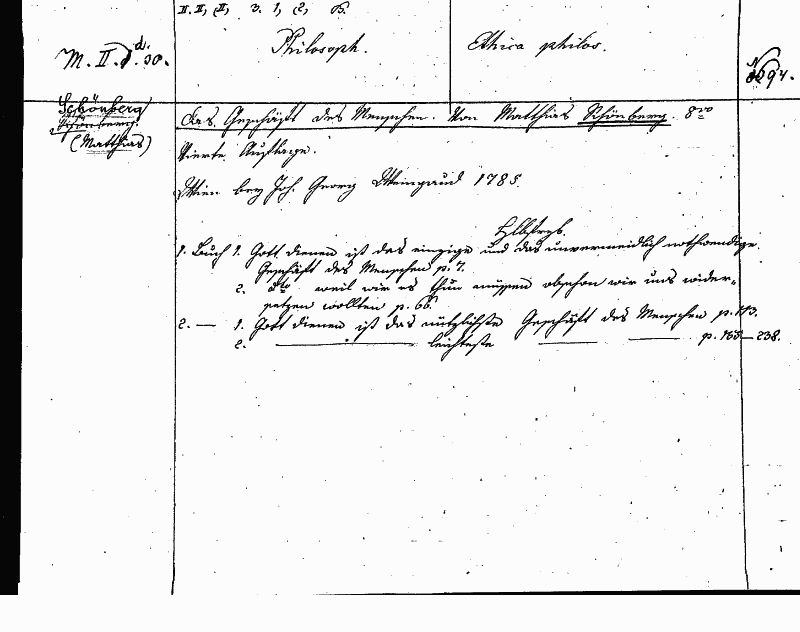 II. II, (I, 3. 1, (2, B.
M. II. d. 30.
Philosoph.
Ethica philos.
N
Schönberg
Schönberg.
(Matthias)
Das Geschäft des Menschen. Von Matthias Schönberg. 8vo
Vierte Auflage.
Wien bey Joh. Georg Weingand 1785.
Hlbfrzb.
1. Buch 1. Gott dienen ist das einzige und das unvermeidlich nothwendige
Geschäft des Menschen p. 7.
2. dto weil wir es thun müssen obschon wir uns wider-
setzen wollten p. 66.
2. — 1. Gott dienen ist das nützlichste Geschäft des Menschen p. 113.
2. ——— leichteste —— —— p. 165—238.